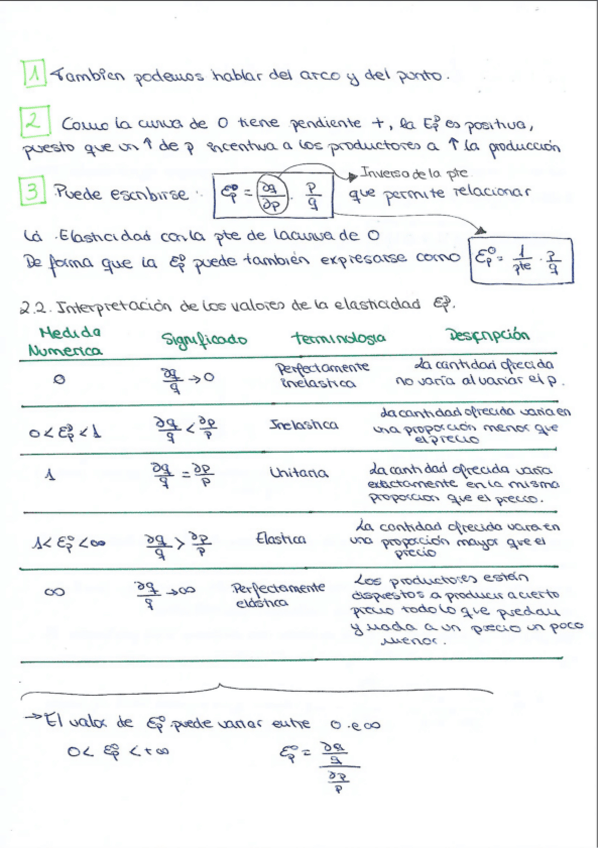 1 Tambien podemos hablar del arco y del punto.
2 Como la curva de O tiene pendiente +, la Eºp es positiva,
puesto que un ↑ de p incentiva a los productores a ↑ la producción
3 Puede escribirse: Eºp = ∂q/∂p · p/q → Inversa de la pte
que permite relacionar
la Elasticidad con la pte de la curva de O
De forma que la Eºp puede también expresarse como Eºp = 1/pte · p/q
2.2. Interpretación de los valores de la elasticidad Eºp.
Medida Numerica Significado terminologia Descripción
0 ∂q/q → 0 Perfectamente inelastica La cantidad ofrecida
no varia al variar el p.
0 < Eºp < 1 ∂q/q < ∂p/p Inelastica La cantidad ofrecida varia en
una proporción menor que
el precio
1 ∂q/q = ∂p/p Unitaria La cantidad ofrecida varia
exactamente en la misma
proporcion que el precio.
1 < Eºp < ∞ ∂q/q > ∂p/p Elastica La cantidad ofrecida varia en
una proporción mayor que el
precio
∞ ∂q/q → ∞ Perfectamente elástica Los productores están
dispuestos a producir a cierto
precio todo lo que puedan
y nada a un precio un poco
menor.
→ El valor de Eºp puede variar entre 0 e ∞
0 < Eºp < +∞ Eºp = ∂q/q / ∂p/p